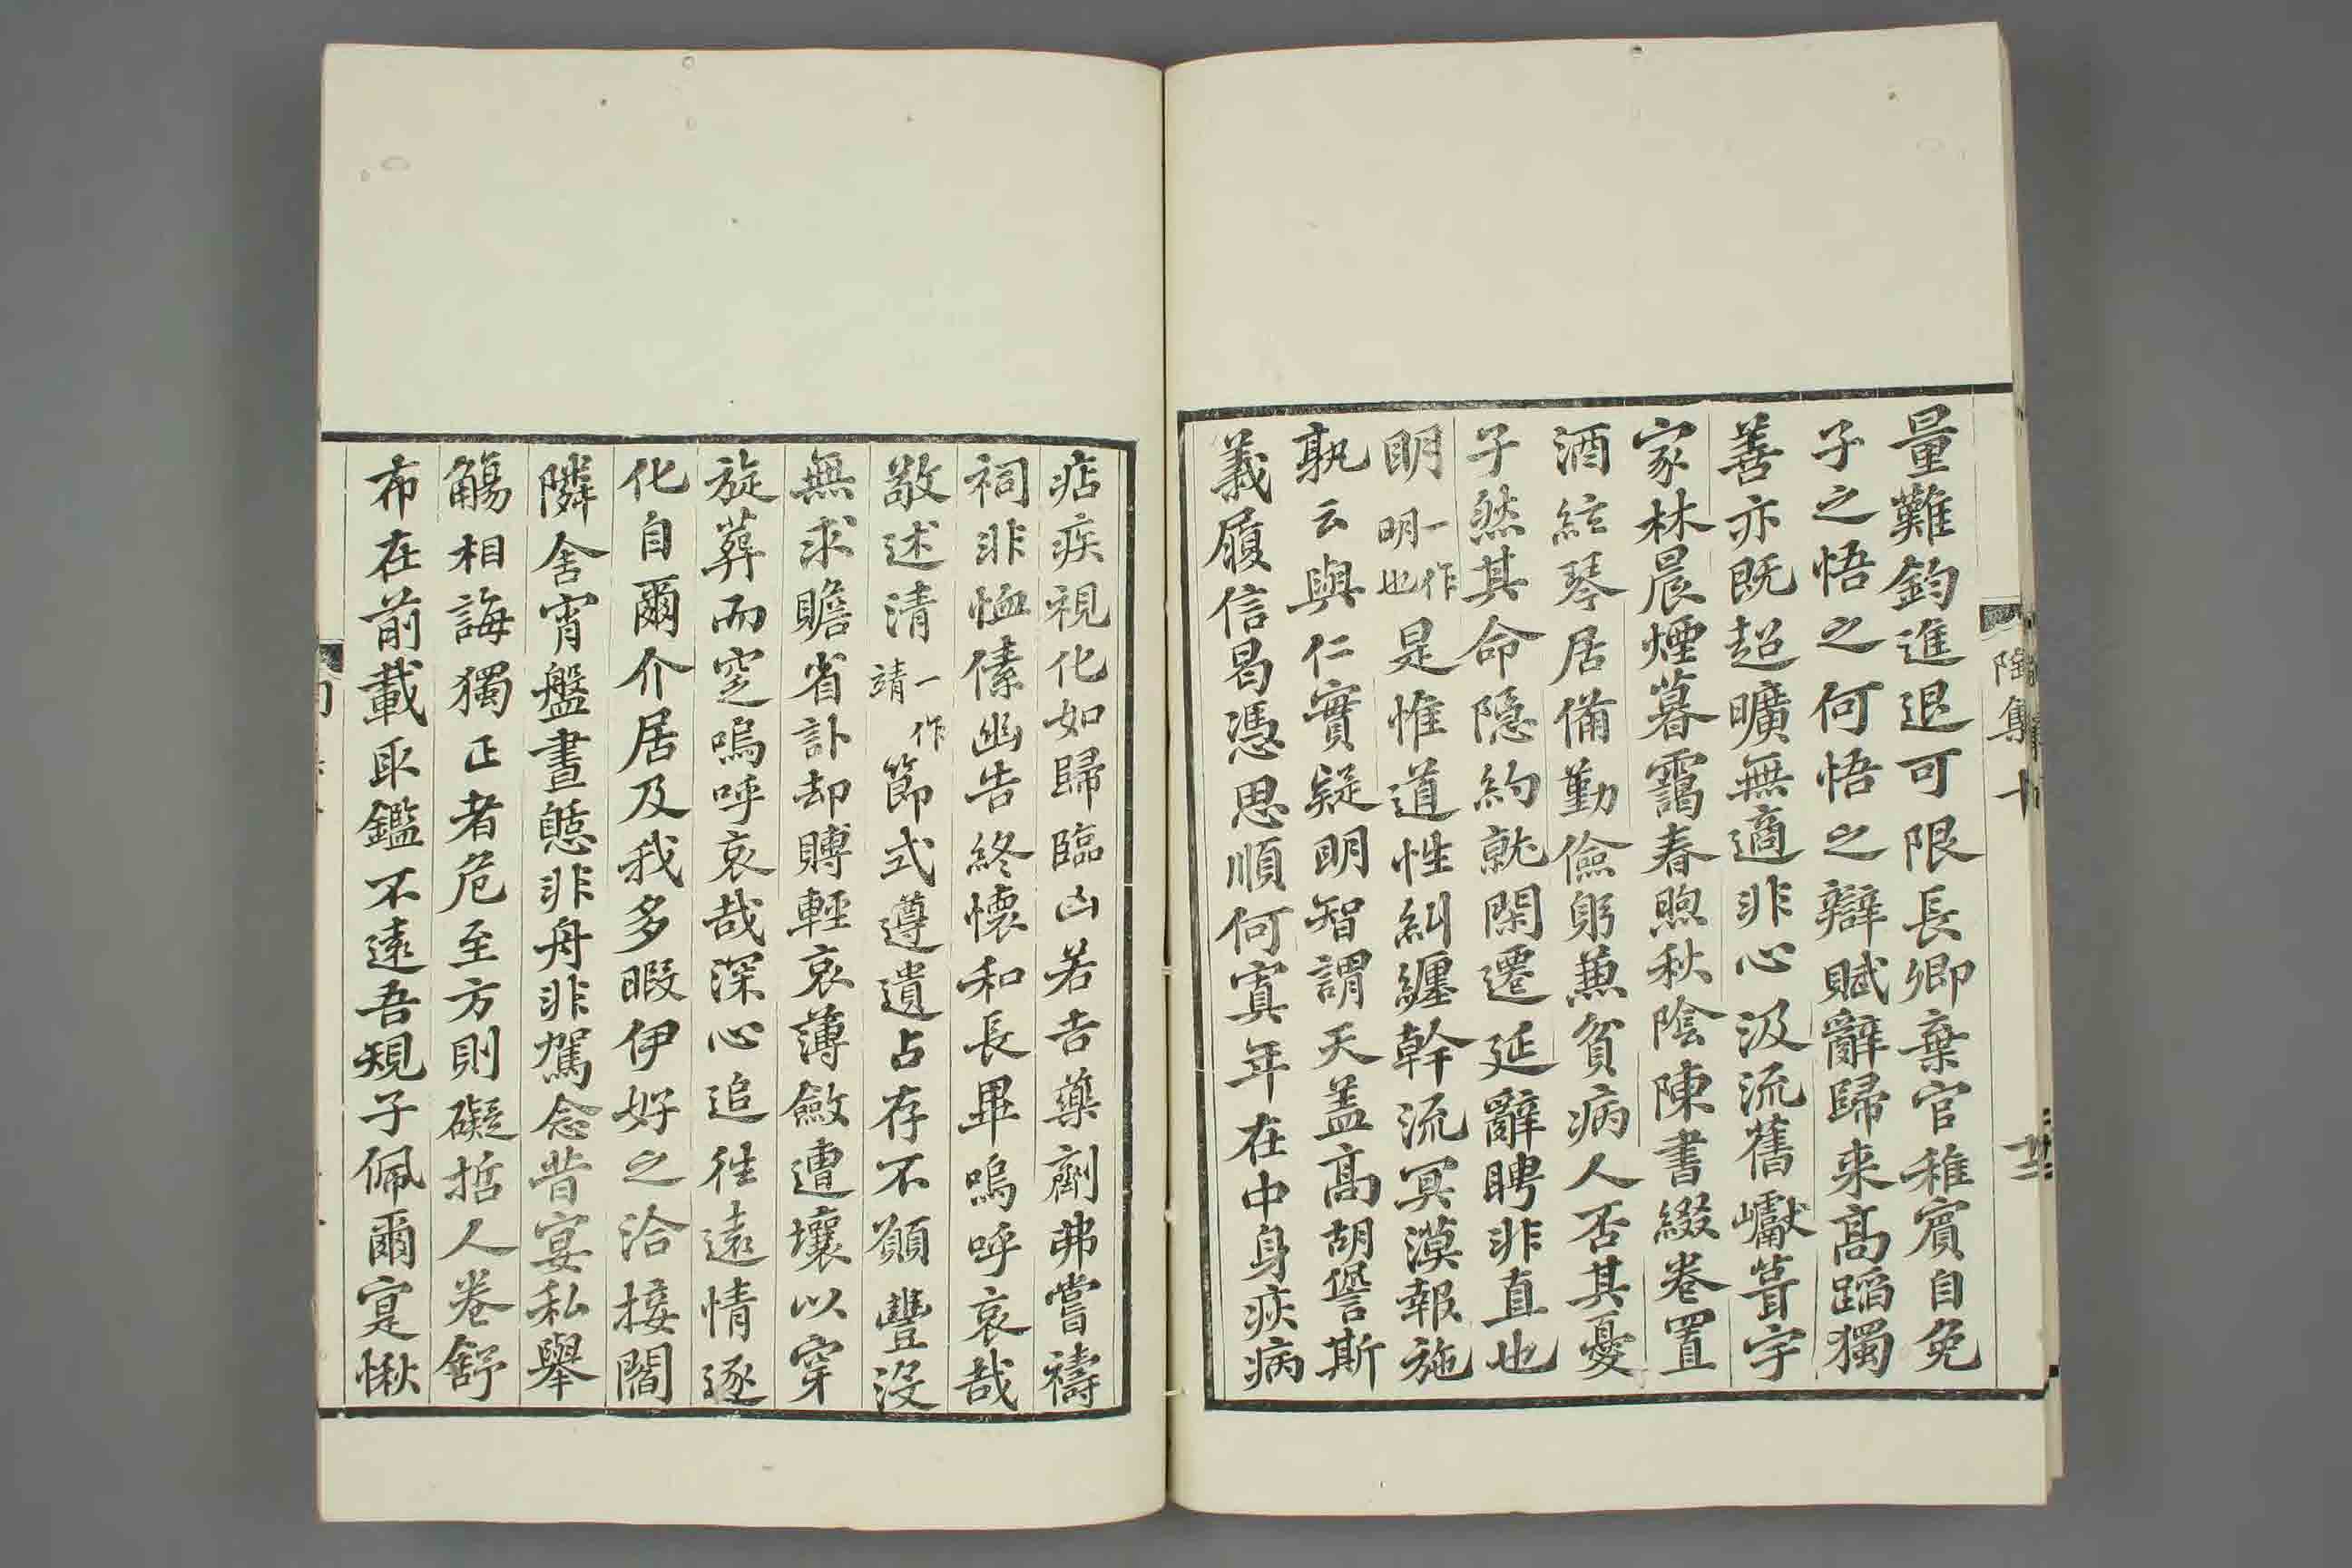 量難鈞進退可限長卿棄官稚賔自免
子之悟之何悟之辯賦辭歸来髙蹈獨
善亦既超曠無適非心汲流舊巘葺宇
家林晨煙暮靄春煦秋陰陳書綴卷置
酒絃琴居備勤儉躬蒹貧病人否其憂
子然其命隐約就閑遷延辭聘非直也
明一作明也是惟道性糾纏幹流冥漠報施
孰云與仁實疑明智謂天盖髙胡諐斯
義履信曷憑思順何寘年在中身疢病
痁疾視化如歸臨凶若吉藥劑弗嘗禱
祠非恤傃幽告終懷和長畢嗚呼哀哉
敬述清一作靖節式遵遺占存不願豐没
無求贍省訃却賻輕哀薄斂遭壤以穿
旋葬而窆嗚呼哀哉深心追徃遠情逐
化自爾介居及我多暇伊好之洽接閻
隣舎宵盤晝憇非舟非駕念昔宴私舉
觴相誨獨正者危至方則礙哲人卷舒
布在前載取鑑不遠吾規子佩爾寔愀
陶集十